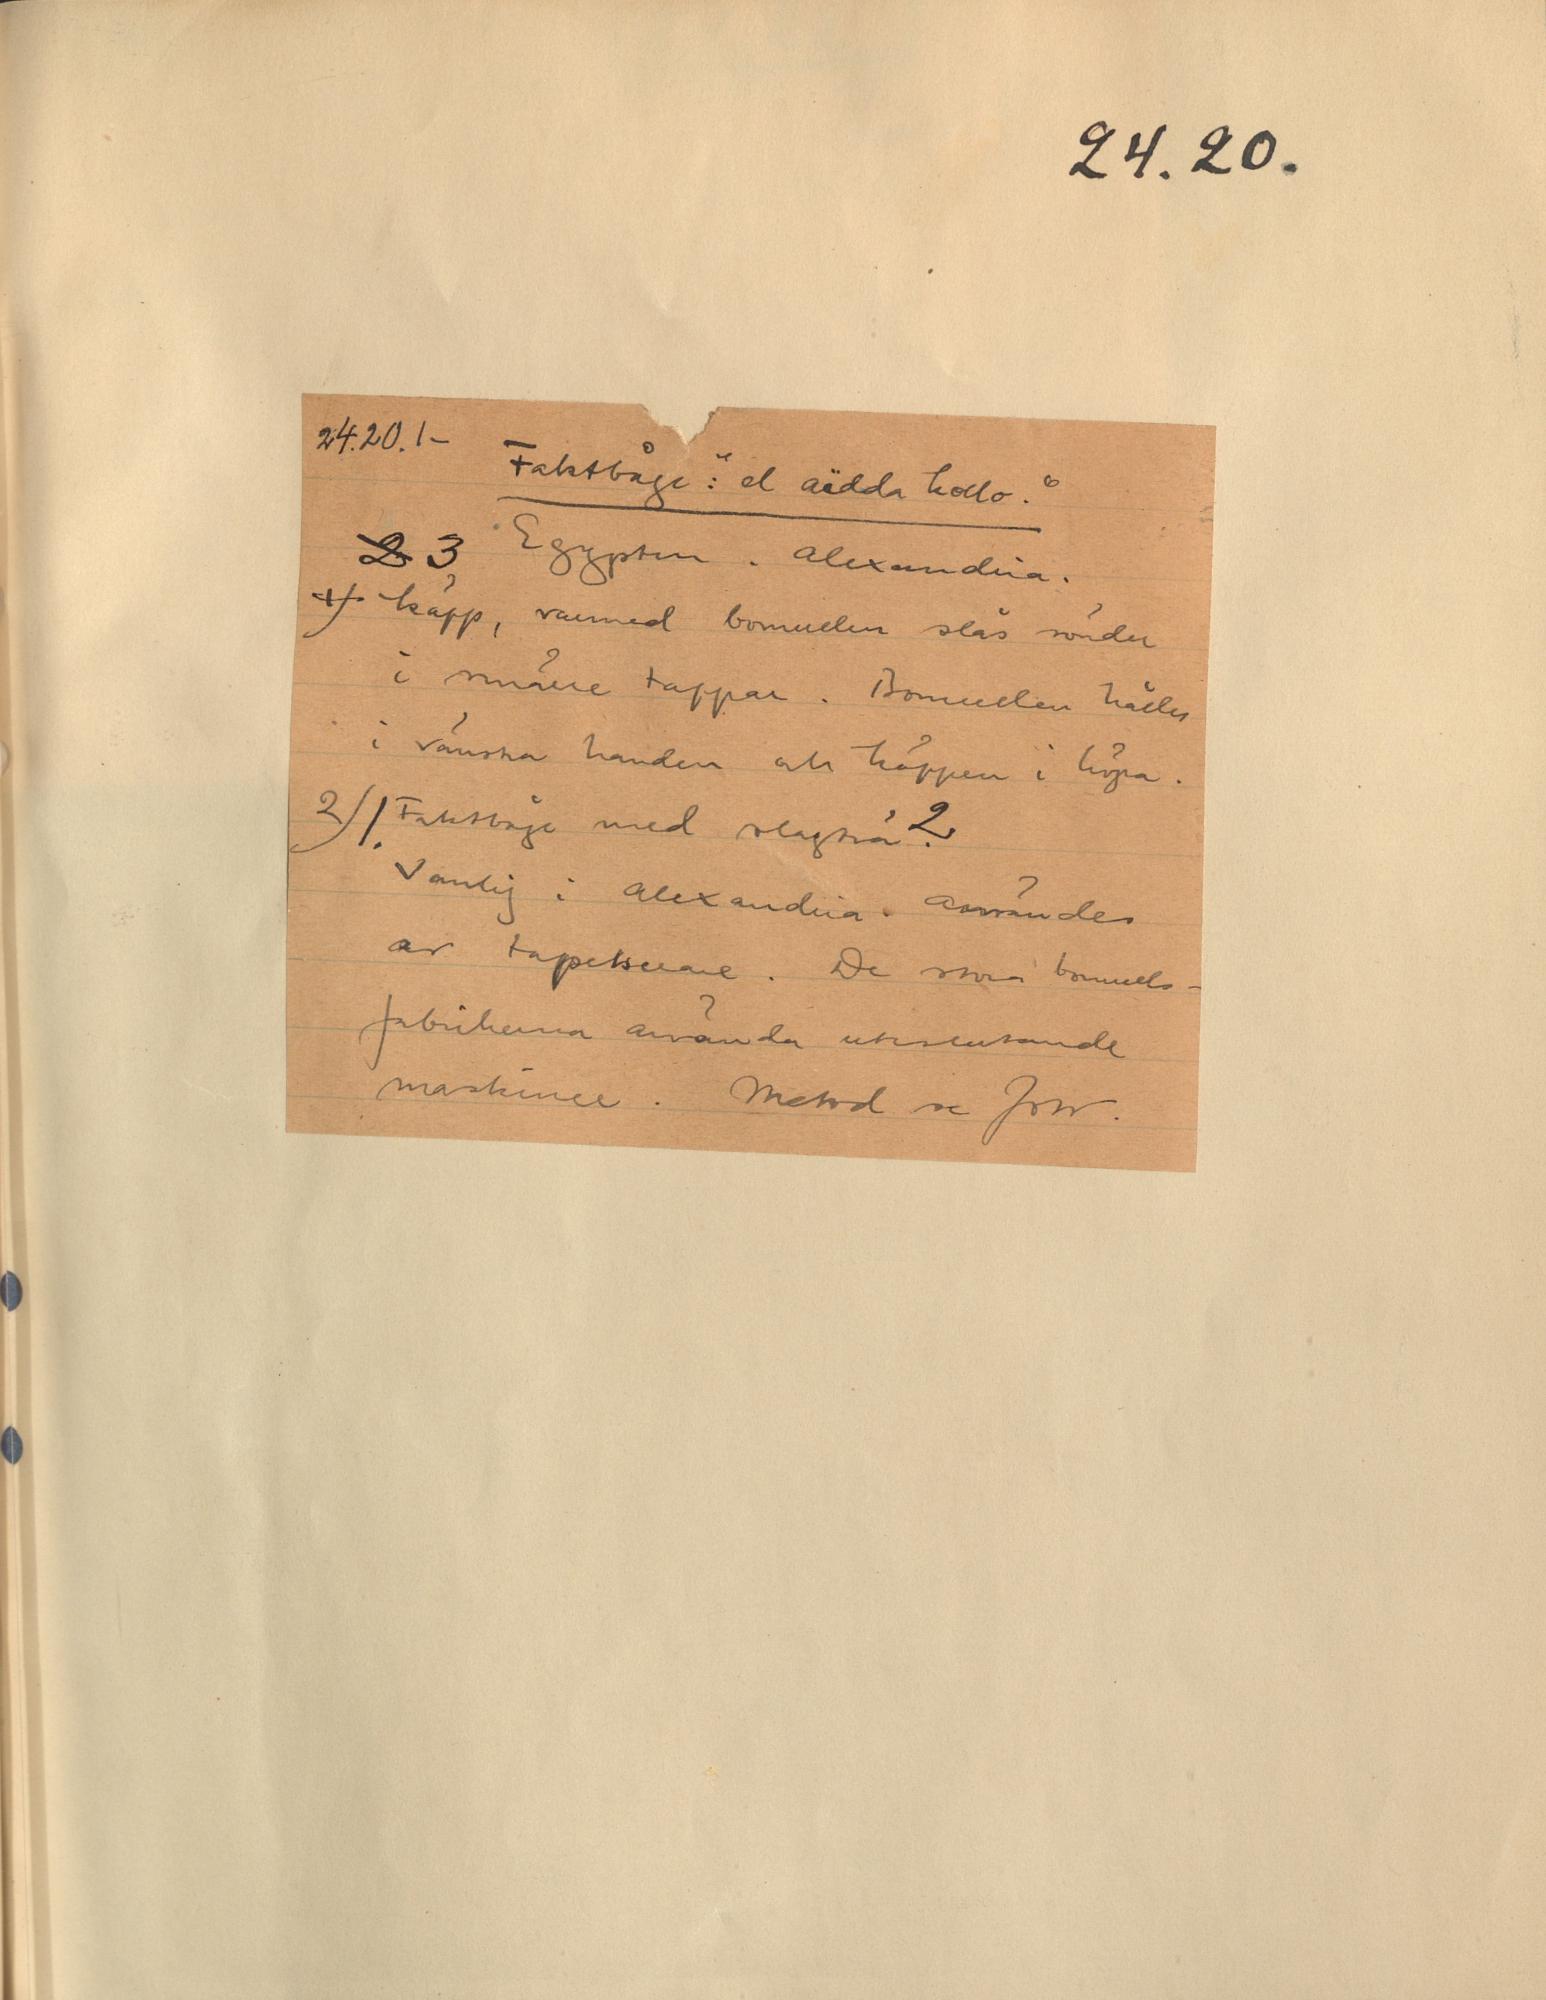 24.20.
24.20.1-
Faktbåge: "el aïdda kollo."
2 3 Egypten. Alexandria.
1) Käpp, varmed bomullen slås sönder
i smärre tappar. Bomullen hålles
i vänstra handen och käppen i högra.
2) 1. Faktbåge med slagträ 2.
Vanlig i Alexandria. Användes
av tapetserare. De stora bomulls-
fabrikerna använda uteslutande
maskiner. Metod se